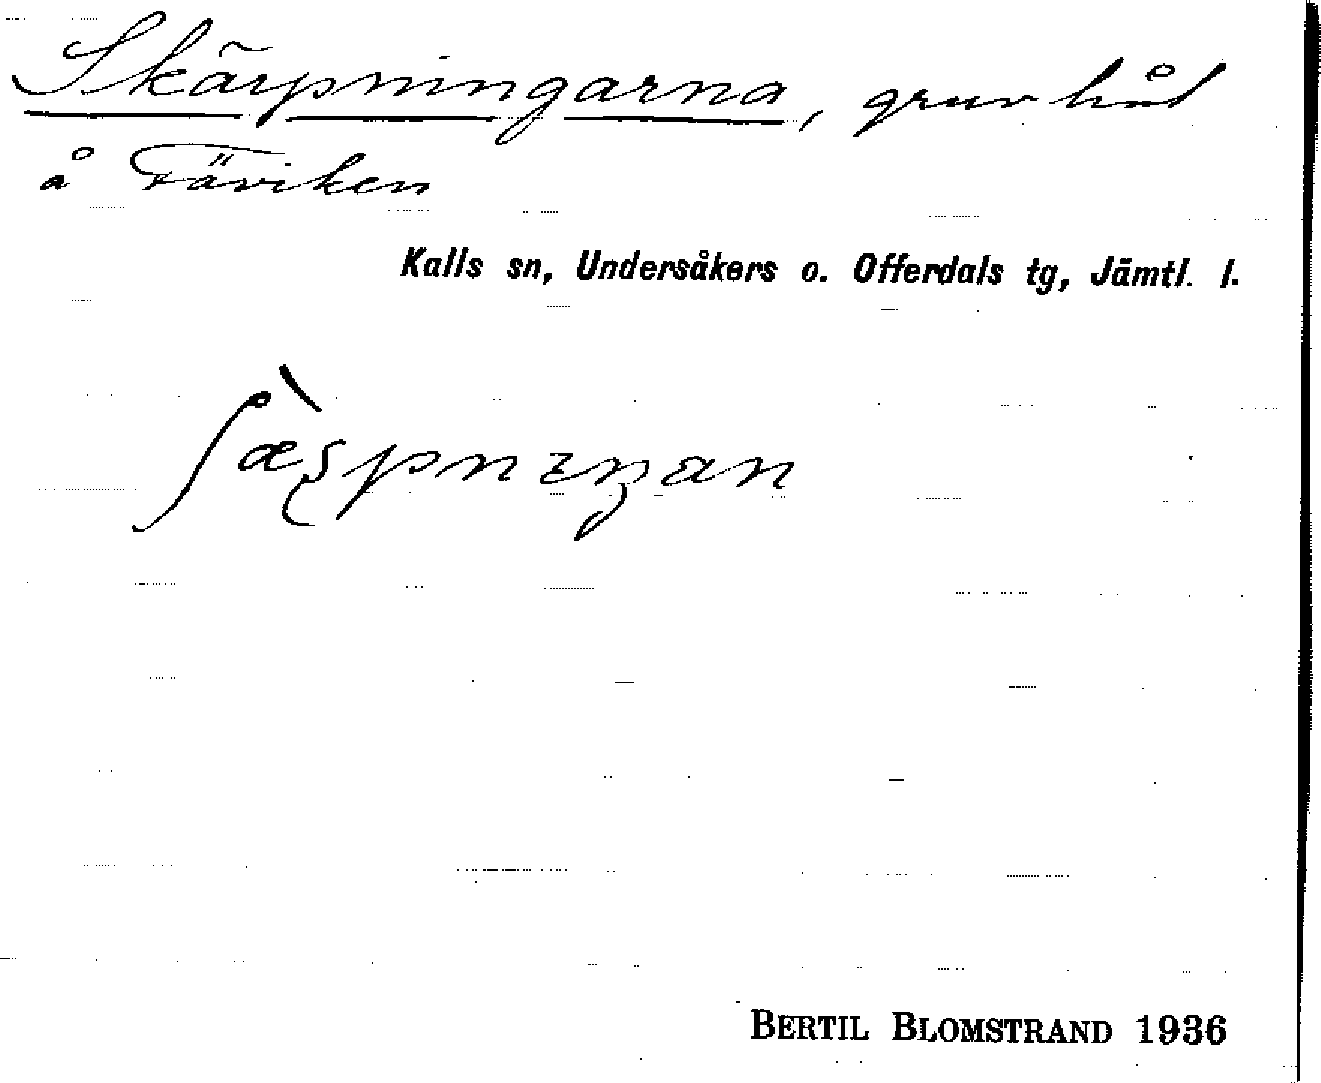 Skärpningarna, gruvhål
å Fäviken
Kalls sn, Undersåkers o. Offerdals tg, Jämtl. l.
ʃæ̀ʂpnɪŋan
BERTIL BLOMSTRAND 1936